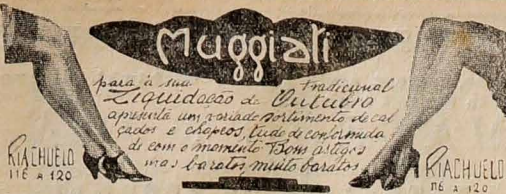 Muggiati
para à sua tradicional
Liquidação de Outubro
apresenta um variado sortimento de cal
çados e chapeos, tudo de conformida
de com o momento Bons artigos
mas baratos, muito baratos
RIACHUELO
116 A 120
RIACHUELO
116 A 120